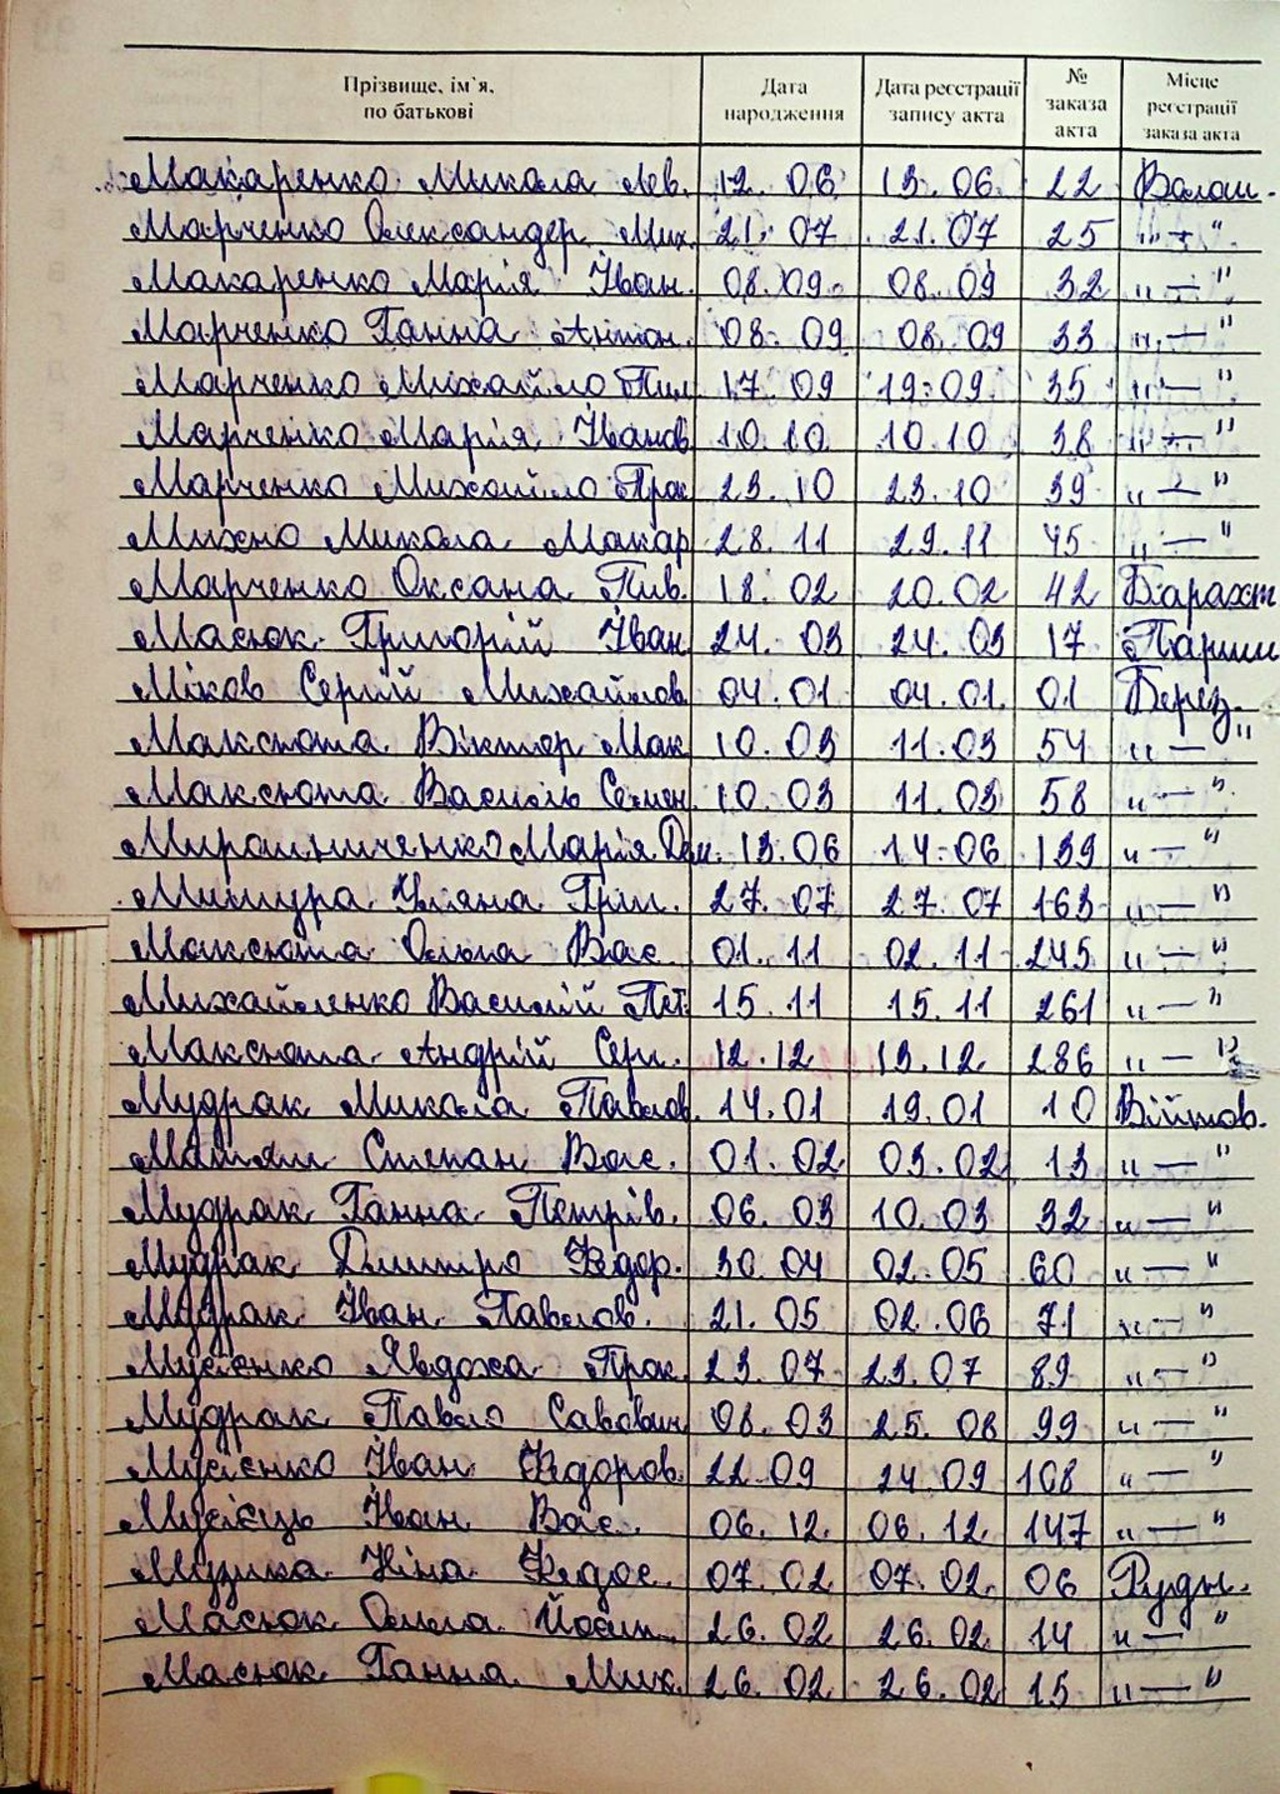 Прізвище, ім`я, по батькові | Дата народження | Дата реєстрації запису акта | № заказа акта | Місце реєстрації заказа акта
Макаренко Микола Лев. 12. 06 13. 06. 22 Волош.
Марченко Олександер Мих. 21. 07 21. 07 25 "—"
Макаренко Марія Іван. 08. 09. 08. 09 32 "—"
Марченко Ганна Антон. 08. 09 08. 09 33 "—"
Марченко Михайло Пил 17. 09 19. 09. 35 "—"
Марченко Марія Іванов 10. 10 10. 10 38 "—"
Марченко Михайло Прок 23. 10 23. 10 39 "—"
Михно Микола Макар 28. 11 29. 11 45 "—"
Марченко Оксана Пив. 18. 02 20. 02 42 Барахт
Масюк Григорій Іван 24. 03 24. 03 17 Париш
Міхов Сергій Михайлов 04. 01 04. 01. 01 Берез.
Максюта Віктор Мак 10. 03 11. 03 54 "—"
Максюта Василь Семен. 10. 03 11. 03 58 "—"
Мирошниченко Марія Дем. 13. 06 14. 06 139 "—"
Уляна Григ. 27. 07 27. 07 163 "—"
Максюта Ольга Вас. 01. 11 02. 11 245 "—"
Михайленко Василій Пет. 15. 11 15. 11 261 "—"
Максюта Андрій Серг. 12. 12 13. 12. 286 "—"
Мудрак Микола Павлов. 14. 01 19. 01 10 Війтов.
Степан Вас. 01. 02 03. 02 13 "—"
Мудрак Ганна Петрів. 06. 03 10. 03 32 "—"
Мудрак Дмитро Федор. 30. 04 02. 05 60 "—"
Мудрак Іван Павлов. 21. 05 02. 06 71 "—"
Мусієнко Явдоха Прок. 23. 07 23. 07 89 "—"
Мудрак Павло Савович 08. 03 25. 08 99 "—"
Мусієнко Іван Федоров. 22. 09 24. 09 108 "—"
Мусієць Іван Вас. 06. 12. 06. 12. 147 "—"
Музика Ніна Федос. 07. 02 07. 02. 06 Рудн.
Масюк Ольга Йосип. 26. 02 26. 02 14 "—"
Масюк Ганна Мих. 26. 02 26. 02 15 "—"